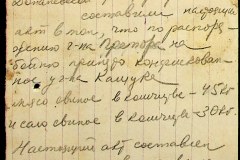 составили настоящий
акт в том, что по распоря-
жению г-на Претора на
бойню принято конфискован-
ное у г-на Кащука
мясо свиное в количестве - 45 кг
и сало свиное в количестве - 30 кг.
Настоящий акт составлен